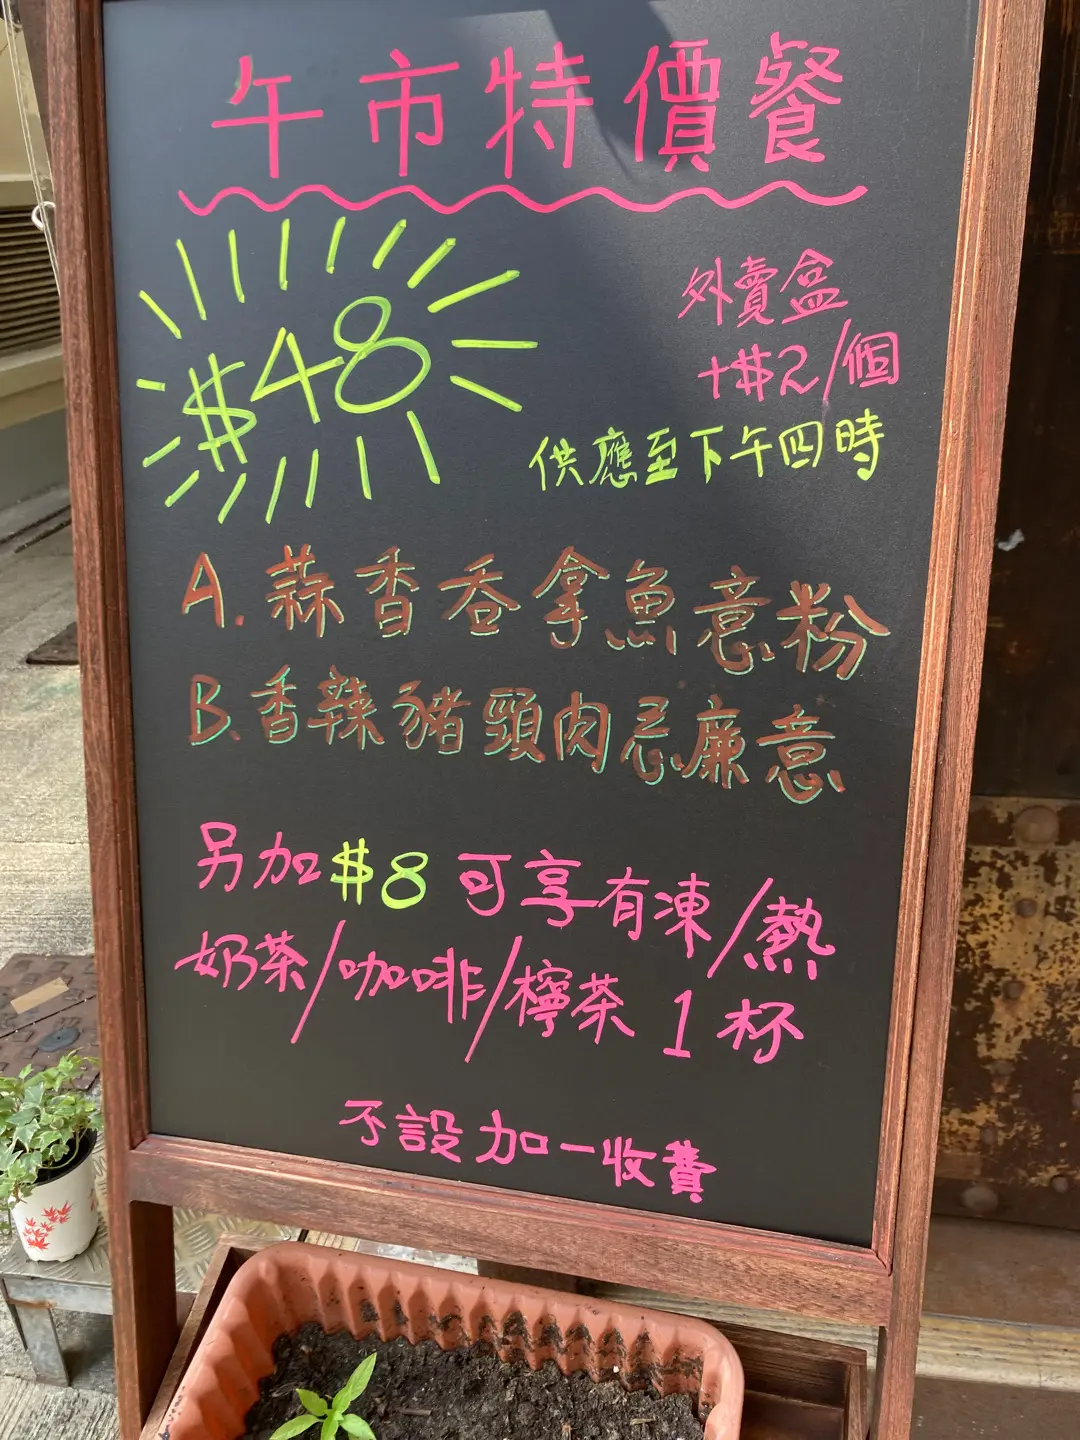 午市特價餐
$48
外賣盒
+$2/個
供應至下午四時
A. 蒜香吞拿魚意粉
B. 香辣豬頸肉忌廉意
另加$8可享有凍/熱
奶茶/咖啡/檸茶1杯
不設加一收費